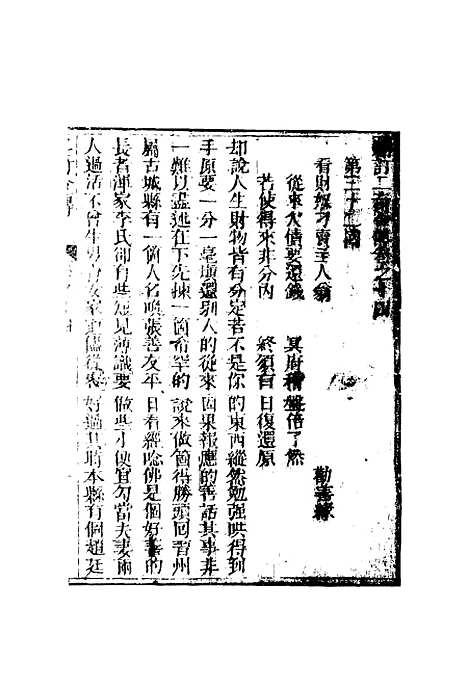 看財奴刁賣主人翁
從來欠債要還錢 冥府稽盤倍了然
若使得來非分內 終須有日復還原
却說人生財物皆有分定若不是你的東西縱然勉強哄得到
手原要一分一毫填還別人的從來因果報應的善話其事非
一難以盡述在下先揀一箇希罕的說來做箇得勝頭回晉州
屬古城縣有一箇人名喚張善友平日看經唸佛是個好善的
長者渾家李氏卻有些短見薄識要做些小便宜勾當夫妻兩
人過活不曾生男育女家道儘從容好過其時本縣有個趙廷